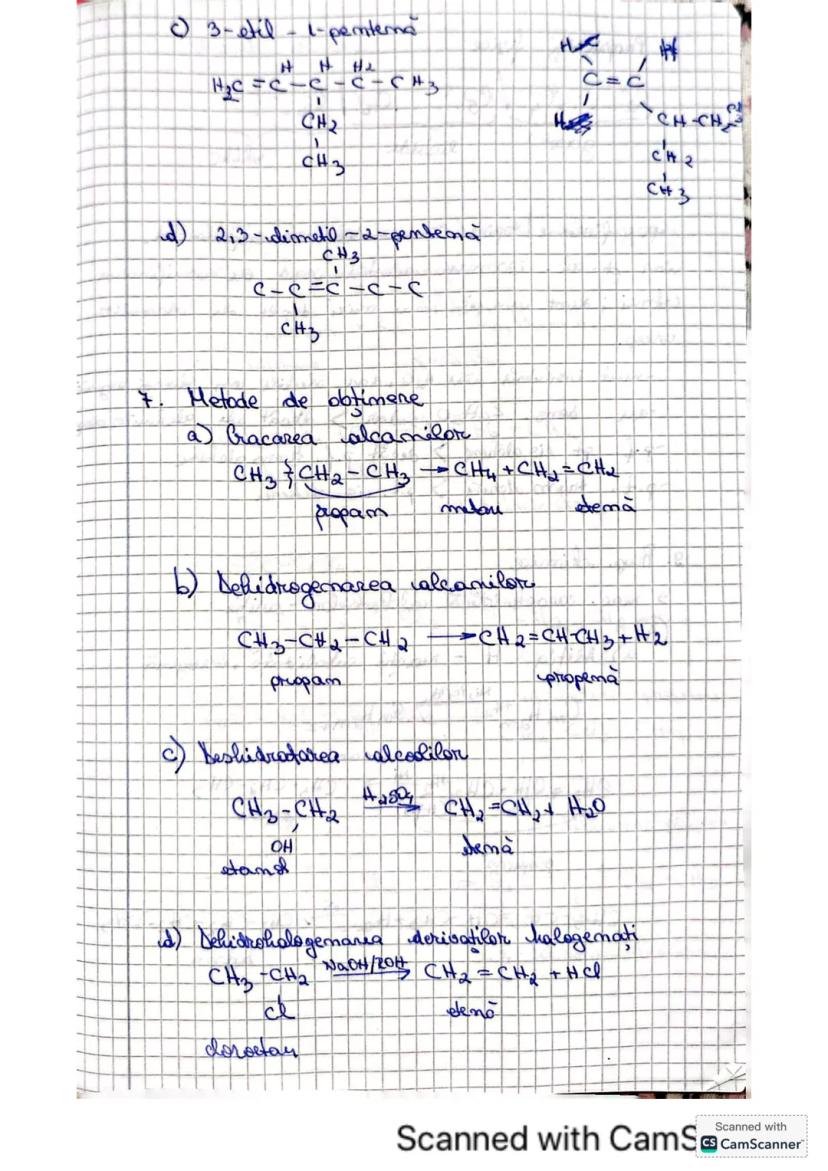 c) 3-etil-1-pentenă
H H H2
H2C = C - C - C - CH3
CH2
CH3
H
C = C
CH-CH2
CH2
CH3
d) 2,3-dimetil-2-pentenă
CH3
C - C = C - C - C
CH3
7. Metode de obținere
a) Cracarea alcanilor
CH3 CH2 - CH3 → CH4 + CH2 = CH2
propan metan etenă
b) Dehidrogenarea alcanilor
CH3-CH2-CH2 → CH2=CH-CH3 + H2
propan propenă
c) Deshidratarea alcoolilor
CH3-CH2 H2SO4→ CH2=CH2+ H2O
OH etenă
etanol
d) Dehidrohalogenarea derivaților halogenați
CH3-CH2 NaOH/ROH→ CH2=CH2 + HCl
Cl etenă
cloroetan
Scanned with CamS
Scanned with
CS CamScanner